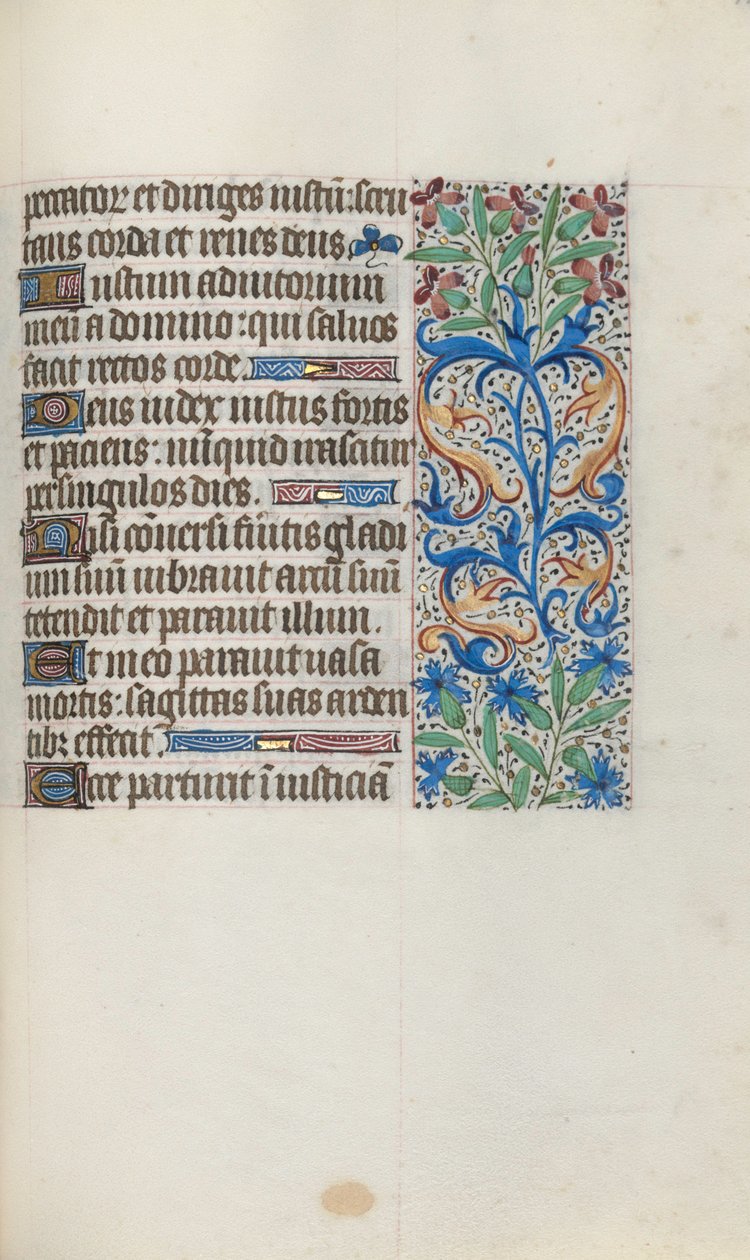 peccatoꝝ et diriges iustū: scru
tans corda et renes deus.
Iustum adiutorium
meū a domino: qui saluos
facit rectos corde
Deus iudex iustus fortis
et paciens: nūquid irascitur
per singulos dies.
Nisi cōuersi fūitis gladi
um suū uibrauit arcū suū
tetendit et parauit illum.
Et in eo parauit uasa
mortis: sagittas suas arden
tibꝫ effecit.
Ecce parturit ī iusticiā